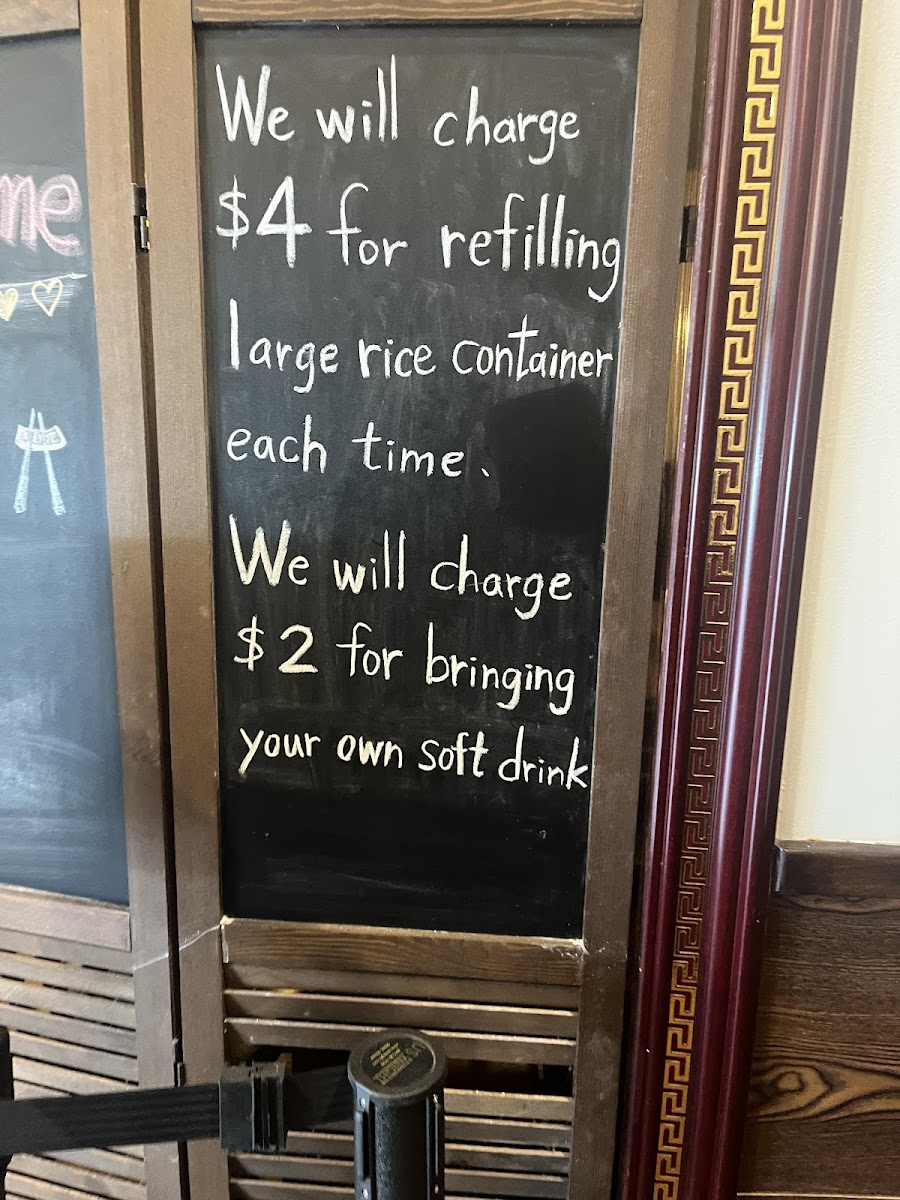 We will charge
$4 for refilling
large rice container
each time.
We will charge
$2 for bringing
your own soft drink
me